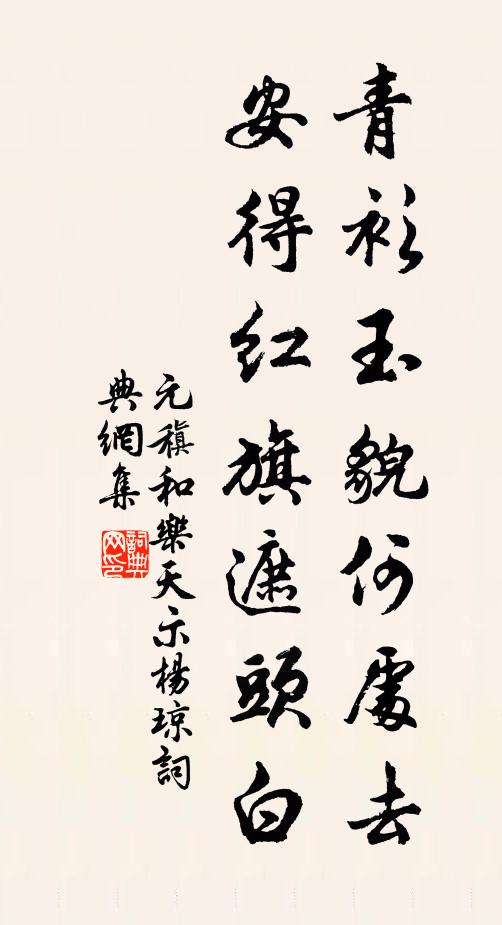 青衫玉貌何處去
安得紅旗遮頭白
元稹和樂天示楊瓊詞
典網集
詞典
网印